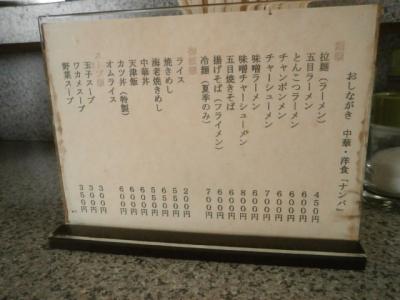 おしながき 中華・洋食「ナンバ」
麺類
拉麺(ラーメン) 450円
五目ラーメン 600円
とんこつラーメン 600円
チャンポンメン 600円
チャーシューメン 700円
味噌ラーメン 600円
味噌チャーシューメン 800円
五目焼きそば 600円
揚げそば(フライメン) 600円
冷麺(夏季のみ) 700円
御飯類
ライス 200円
焼きめし 550円
海老焼きめし 650円
中華丼 600円
天津飯 600円
カツ丼(特製) 600円
オムライス 600円
スープ類
玉子スープ 300円
ワカメスープ 300円
野菜スープ 350円